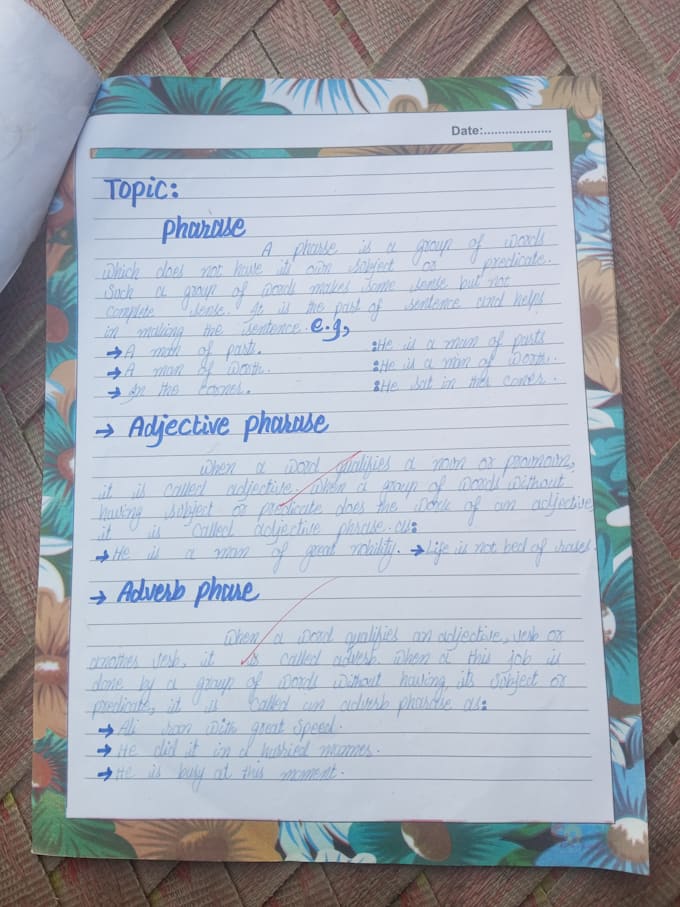 Date:...................
Topic:
Pharase
A pharse is a group of words
which does not have its own subject or predicate.
Such a group of words makes some sense but not
complete sense. It is the part of sentence and helps
in making the sentence. e.g,
→ A man of parts. :He is a man of parts
→ A man of worth. :He is a man of worth.
→ In the corner. :He sat in the corner.
→ Adjective pharase
When a word qualifies a noun or pronoun,
it is called adjective. When a group of words without
having subject or predicate does the work of an adjective,
it is called adjective phrase. as:
→ He is a man of great nobility. → Life is not bed of roses.
→ Adverb phare
When a word qualifies an adjective, verb or
another verb, it is called adverb. When a this job is
done by a group of words without having its subject or
predicate, it is called an adverb pharase as:
→ Ali ran with great speed.
→ He did it in a hurried manner.
→ He is busy at this moment.